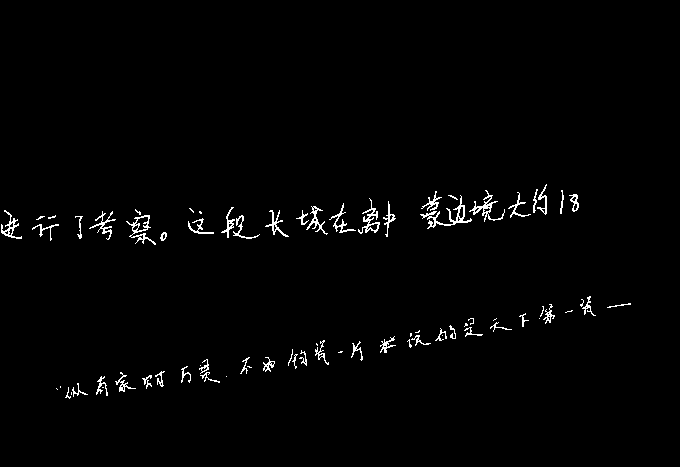 进行了考察。这段长城在离中 蒙边境大约18
"纵有家财万贯，不如钧瓷一片"说的是天下第一瓷—